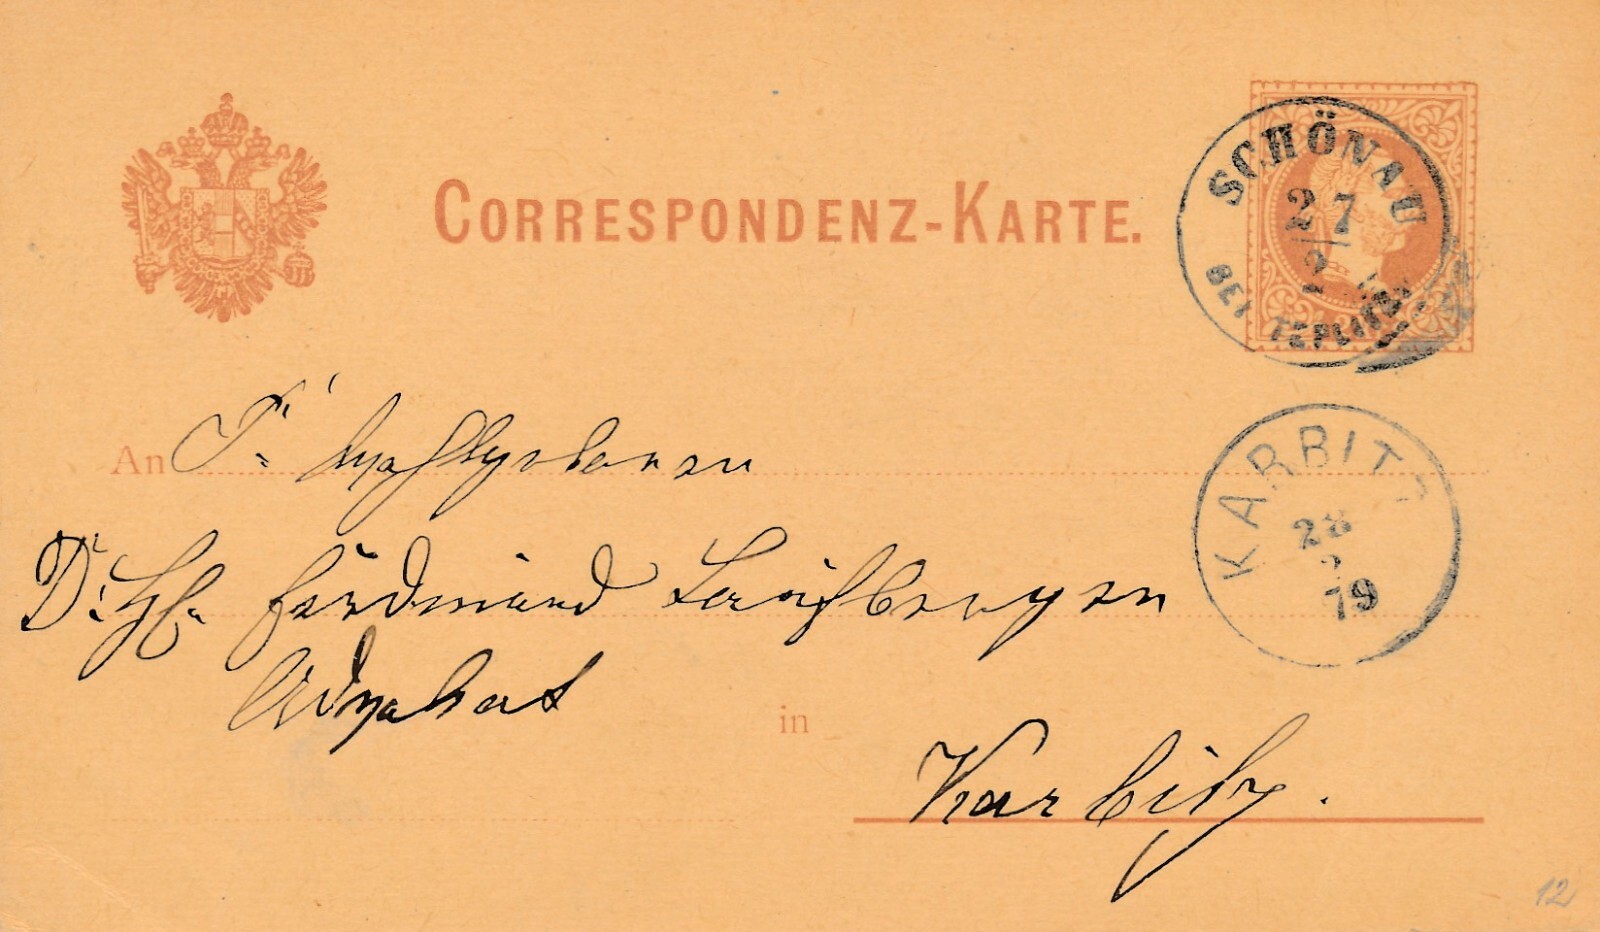 CORRESPONDENZ-KARTE.
SCHÖNAU
27
2
BEI TEPLITZ
An Sr. Hochgeboren
KARBITZ
28
2
79
Dr. Ferdinand
Advokat
in
Karbitz.
12